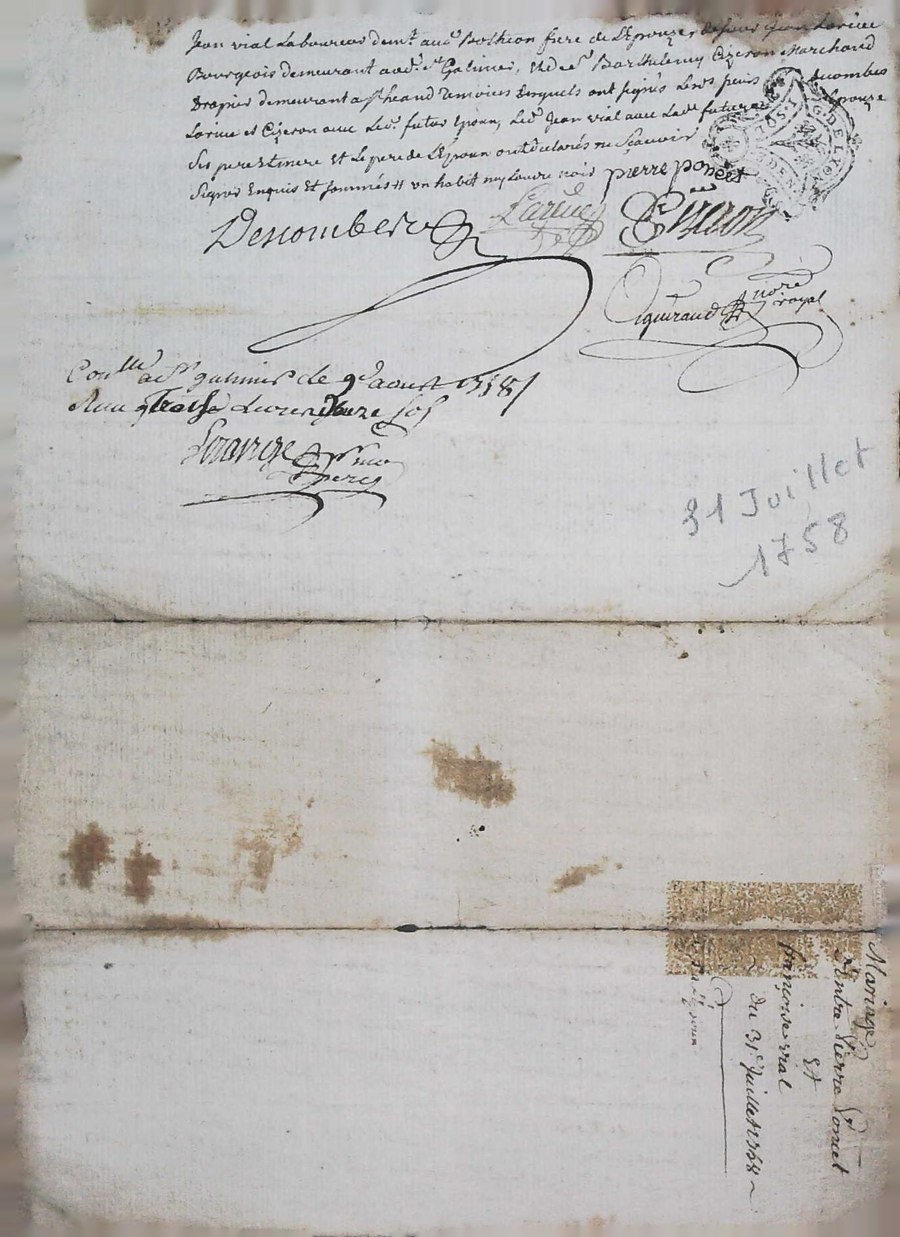 Jean vial Laboureur demt. aud. Bothion frere de L'Epouze, Jean Larüe
Bourgeois demeurant aud. St Galmier, Et de Sr Barthelemy Cizeron Marchand
Drapier demeurant a St heand Temoins Lesquels ont signés descombes
Larüe et Cizeron avec Led. futur Epoux, Led. Jean vial avec Lad. future Epouze
Ses pere et mere Et Le pere de L'Epoux ont declarés ne Sçavoir
Signer Enquis Et Sommés un habit noir pierre poncet
Descombes Larüe Cizeron
Ziguiraud nore royal
Con.lle a St galmier le 9e aout 1758
Reçu Treise Livres Douze Sols
31 Juillet
1758
G. DE LYON
Mariage
Entre Pierre Poncet
Et
françoise vial
du 31e Juillet 1758